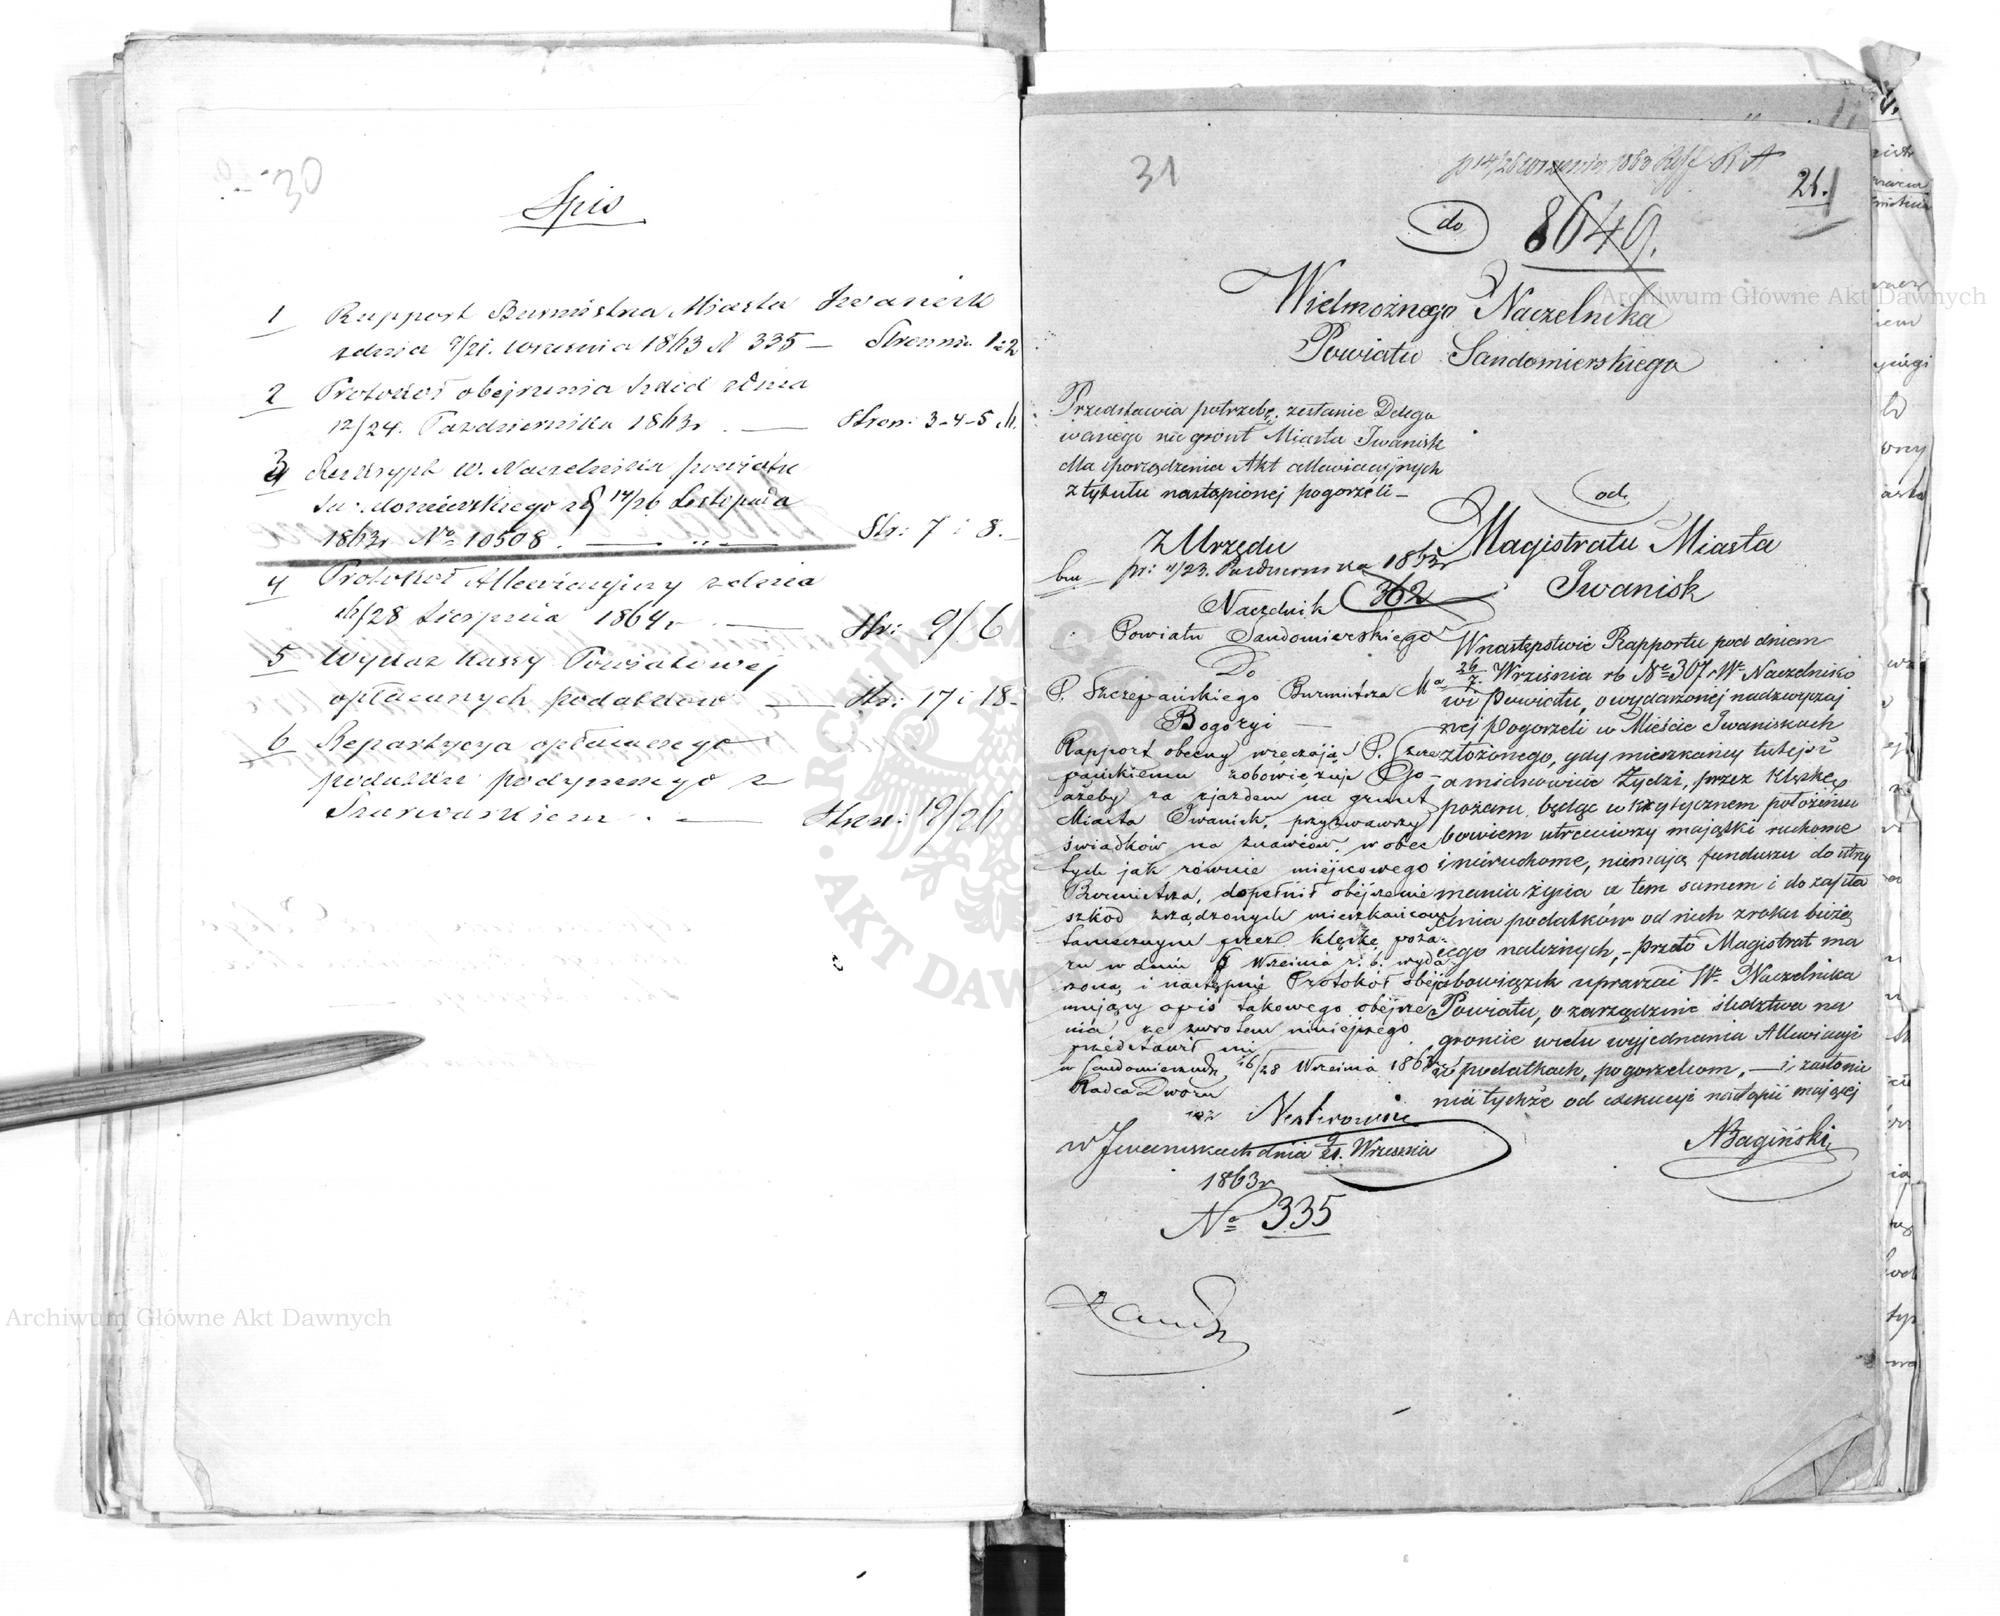 30
Spis
1 Rapport Burmistrza Miasta Iwanisk
zdnia 9/21. września 1863 N 335 — Stronnic 1 i 2
2 Protokół obejrzenia szkód zdnia
12/24. Października 1863r. — Stron: 3-4-5
3 Reskrypt W. Naczelnika powiatu
Sandomierskiego zd 14/26 Listopada
1863r No 10508. — Str: 7 i 8.
4 Protokół Allewiacyjny zdnia
16/28 Sierpnia 1864r — Str: 9/16
5 Wykaz Kassy Powiatowej
opłacanych podatków — Str: 17 i 18
6 Repartycya opłacanego
podatku podymnego z
Szarwarkiem. — Stron: 19/26
31
p 14/26 września 1863
21.
do 8649.
Wielmożnego Naczelnika
Powiatu Sandomierskiego
Przedstawia potrzebę, zesłanie Delego
wanego na grónt Miasta Iwanisk
dla sporządzenia Akt allewiacyjnych
z tytułu nastąpionej pogorzeli —
od
Magistratu Miasta
Iwanisk
Z Urzędu
pr: 11/23. Października 1863r
362
Naczelnik
Powiatu Sandomierskiego
Do
P. Szczepańskiego Burmistrza Ma
Bogoryi —
Rapport obecny wręczając P. Szcze
pańskiemu zobowiązuję Go
ażeby za zjazdem na grunt
Miasta Iwanisk, przyzwawszy
świadków na znawców, w obec
tych jak równie miejscowego
Burmistrza, dopełnił obejrzenie
szkód zrządzonych mieszkańcom
tamecznym przez klęskę poża-
ru w dniu 6 Września r. b. wyda
rzoną, i następnie Protokół obej
mujący opis takowego obejrze
nia ze zwrotem niniejszego
przedstawił mi
w Sandomierzu d. 16/28 Września 1863r.
Radca Dworu
Nesterowicz
W następstwie Rapportu pod dniem
Września rb No 307 W. Naczelniko
wi Powiatu, o wydarzonej nadzwyczaj
nej Pogorzeli w Mieście Iwaniskach
złożonego, gdy mieszkańcy tutejsi
a mianowicie Żydzi, przez klęskę
pożaru będąc w krytycznem położeniu
bowiem utraciwszy majątki ruchome
i nieruchome, niemają funduszu do utrzy
mania życia a tem samem i do zapła
cenia podatków od nich zroku bieżą
cego należnych, – przeto Magistrat ma
obowiązek upraszać W. Naczelnika
Powiatu, o zarządzenie śledztwa na
groncie wcelu wyjednania Allewiacyi
w podatkach, pogorzelcom, — i zasłonie
nia tychże od exekucyi nastąpić mającej
NBagiński
w Iwaniskach dnia 9/21. Września
1863r
No 335